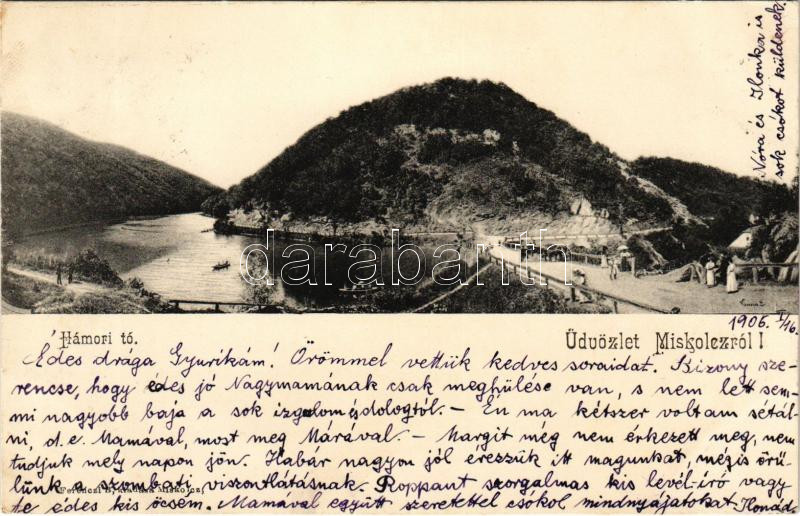 Nóra és Ilonka is
sok csókot küldenek.
darabanth
Hámori tó.
Üdvözlet Miskolczról!
1906. I/16.
Édes drága Gyurikám! Örömmel vettük kedves soraidat. Bizony sze-
rencse, hogy édes jó Nagymamának csak meghülése van, s nem lett sem-
mi nagyobb baja a sok izgalom és dologtól. – Én ma kétszer voltam sétál-
ni, d. e. Mamával, most meg Márával. – Margit még nem érkezett meg, nem
tudjuk mely napon jön. Habár nagyon jól érezzük itt magunkat, mégis örü-
lünk a szombati viszontlátásnak. Roppant szorgalmas kis levél-író vagy
Ferenczi B. kiadása Miskolcz.
te édes kis öcsém. Mamával együtt szeretettel csókol mindnyájatokat Ilonád.